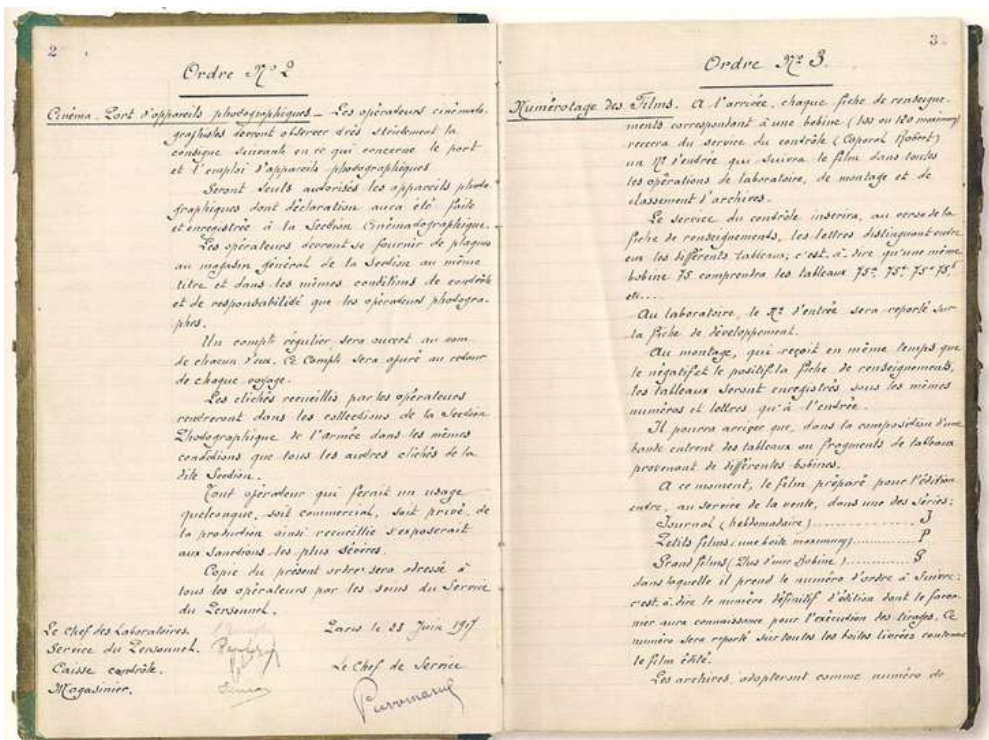 2
Ordre Nº 2
Cinéma. Port d'appareils photographiques _ Les opérateurs cinémato-
graphistes devront observer très strictement la
consigne suivante en ce qui concerne le port
et l'emploi d'appareils photographiques
Seront seuls autorisés les appareils photo
graphiques dont déclaration aura été faite
et enregistrée à la Section Cinématographique.
Les opérateurs devront se fournir de plaques
au magasin général de la Section au même
titre et dans les mêmes conditions de contrôle
et de responsabilité que les opérateurs photogra-
phes.
Un compte régulier sera ouvert au nom
de chacun d'eux. Ce Compte sera apuré au retour
de chaque voyage.
Les clichés recueillis par les opérateurs
rentreront dans les collections de la Section
Photographique de l'armée dans les mêmes
conditions que tous les autres clichés de la
dite Section.
Tout opérateur qui ferait un usage
quelconque, soit commercial, soit privé, de
la production ainsi recueillie s'exposerait
aux sanctions les plus sévères.
Copie du présent ordre sera adressé à
tous les opérateurs par les soins du Service
du Personnel.
Le Chef des Laboratoires.
Service du Personnel.
Caisse contrôle.
Magasinier.
Paris le 23 Juin 1917
Le Chef de Service
3.
Ordre Nº 3.
Numérotage des Films. A l'arrivée, chaque fiche de renseigne-
ments correspondant à une bobine (100 ou 120 maximum)
recevra du service du contrôle (Caporal Robert)
un Nº d'entrée qui suivra le film dans toutes
les opérations de laboratoire, de montage et de
classement d'archives.
Le service du contrôle inscrira, au verso de la
fiche de renseignements, les lettres distinguant entre
eux les différents tableaux; c'est-à-dire qu'une même
bobine 75 comprendra les tableaux
etc....
Au laboratoire, le Nº d'entrée sera reporté sur
la fiche de développement.
Au montage, qui reçoit en même temps que
le négatif et le positif la fiche de renseignements,
les tableaux seront enregistrés sous les mêmes
numéros et lettres qu'à l'entrée.
Il pourra arriver que, dans la composition d'une
bande entrent des tableaux ou fragments de tableaux
provenant de différentes bobines.
A ce moment, le film préparé pour l'édition
entre, au service de la vente, dans une des séries:
Journal (hebdomadaire).............. J
Petits films (une boîte maximum)........... P
Grand films (Plus d'une Bobine)............ G
dans laquelle il prend le numéro d'ordre à suivre:
c'est-à-dire le numéro définitif d'édition dont le
nier aura connaissance pour l'exécution des tirages. Ce
numéro sera reporté sur toutes les boîtes livrées contenant
le film édité.
Les archives adopteront comme numéro de